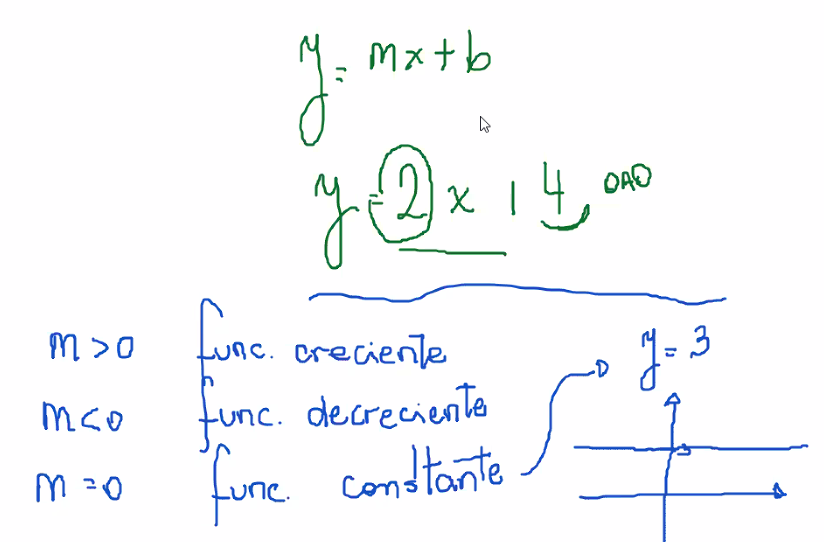 y = mx + b
y = 2x + 4 OAO
m > 0 func. creciente
y = 3
m < 0 func. decreciente
m = 0 func. constante
3